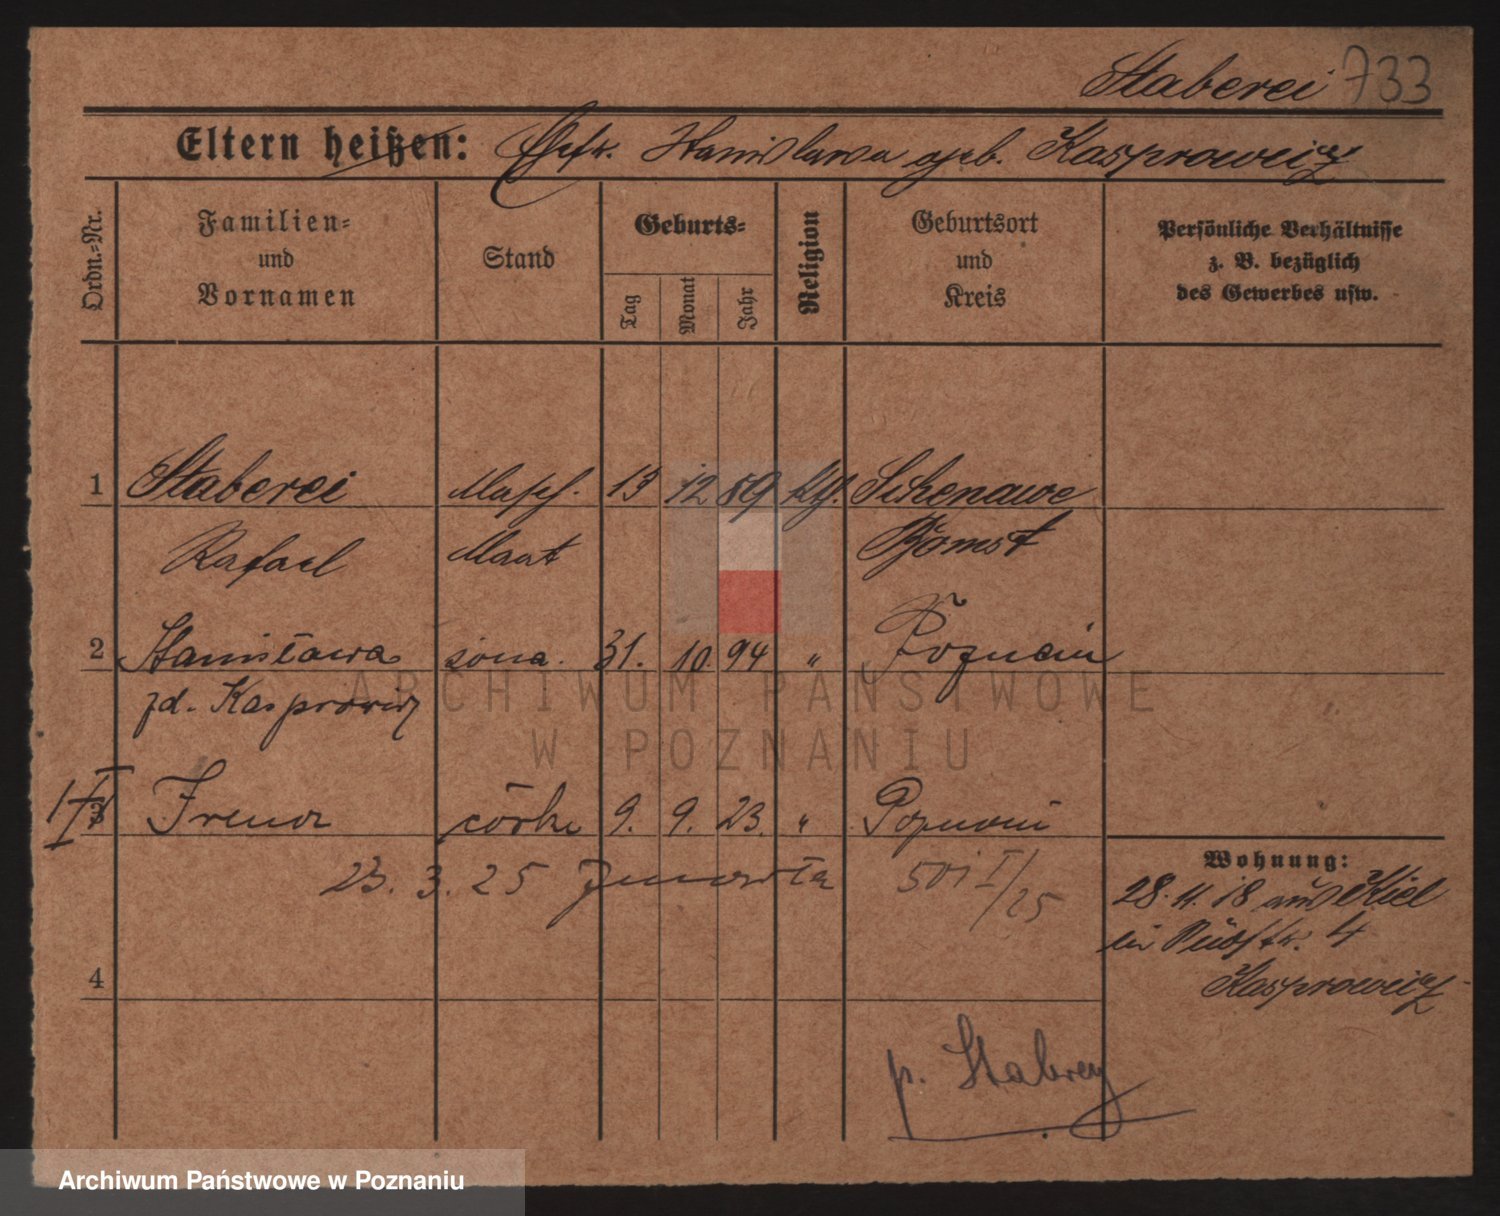 Staberei 733
Eltern heißen: Ehefr. Stanislawa geb. Kasproweicz
Ordn.=Nr.
Familien=
und
Vornamen
Stand
Geburts=
Tag
Monat
Jahr
Religion
Geburtsort
und
Kreis
Persönliche Verhältnisse
z. B. bezüglich
des Gewerbes usw.
1 Staberei Masch. 13 12 89 kth. Schenawe
Rafael Maat Bomst
2 Stanisława żona. 31. 10. 94 " Poznań
zd. Kasprowicz
3 Irena córka 9. 9. 23. " Poznań
23. 3. 25 50i I/25
Wohnung:
28. 11. 18 aus Kiel
4
Kasproweicz
p. Stabrey
ARCHIWUM PAŃSTWOWE
W POZNANIU
Archiwum Państwowe w Poznaniu